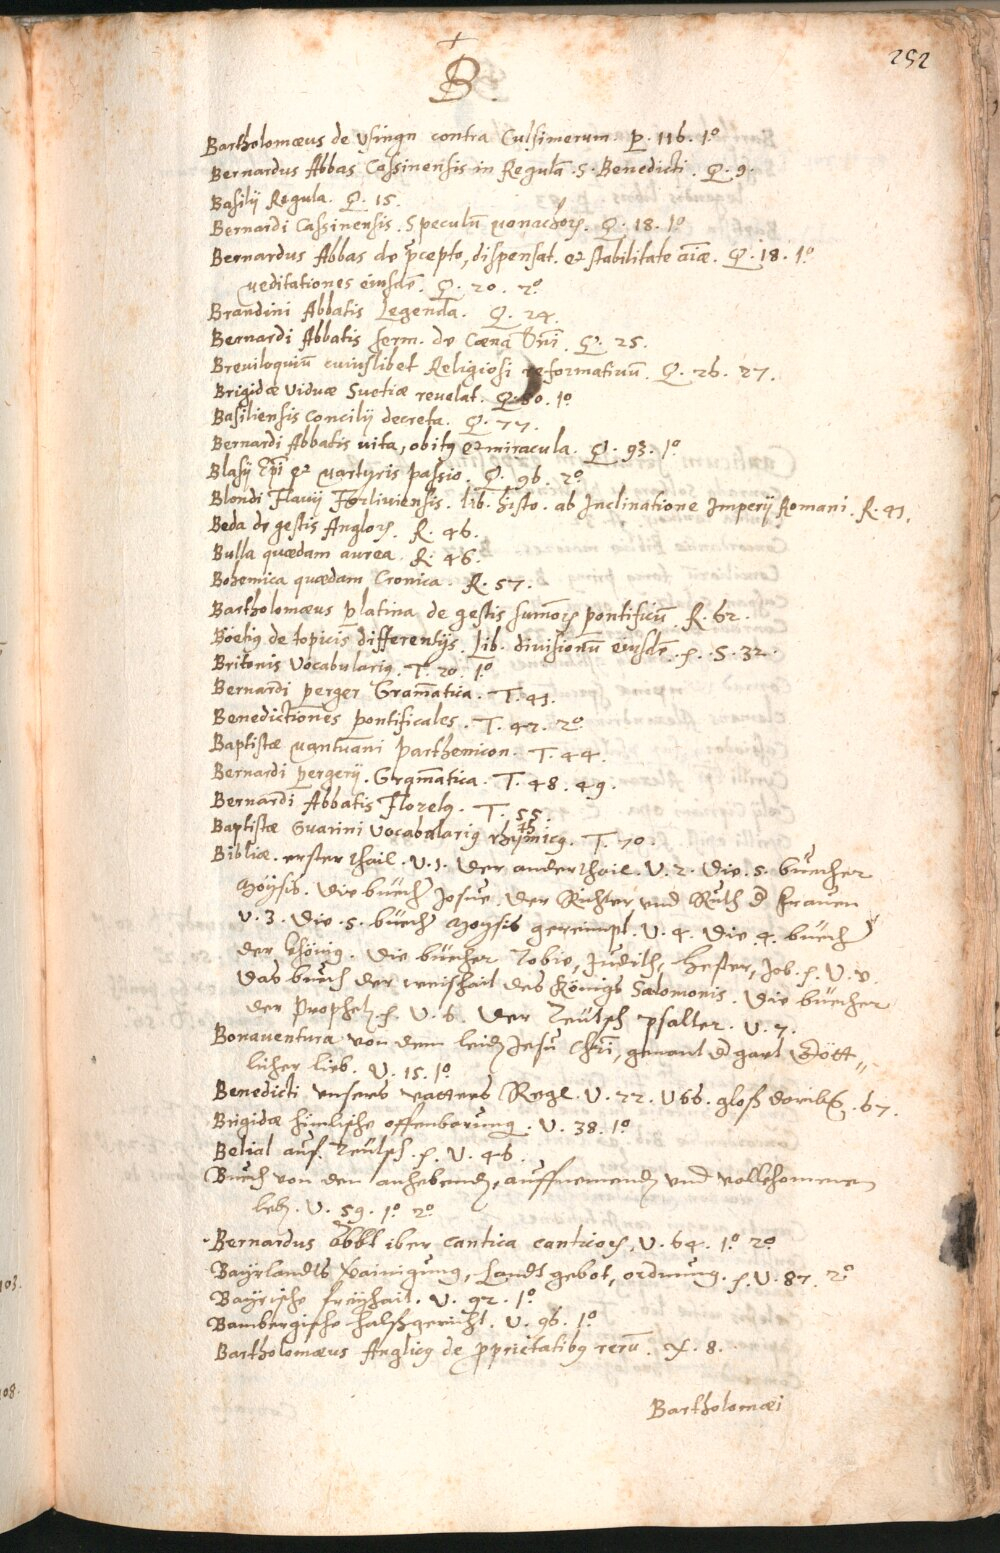 252
B.
Bartholomæus de Vsingn contra Culsimerum. P. 116. 1º
Bernardus Abbas Cassinensis in Regulā .S. Benedicti. Q. 9.
Basilij Regula. Q. 15.
Bernardi Cassinensis. Speculū monachorꝝ. Q. 18. 1º
Bernardus Abbas de p̄cepto, dispensat. et stabilitate aīæ. Q. 18. 1º
meditationes eiusdē. Q. 20. 2º
Brandini Abbatis Legenda. Q. 24.
Bernardi Abbatis serm. de Cœna Dn̄i. Q. 25.
Breviloquiū cuiuslibet Religiosi reformatiuū. Q. 26. 27.
Brigidæ Viduæ Suetiæ reuelat. Q. 1º
Basiliensis Concilij decreta. Q. 77.
Bernardi Abbatis vita, obitꝰ et miracula. Q. 93. 1º
Blasij Ep̄i et martyris passio. Q. 96. 2º
Blondi Flavij Forliuiensis. Lib. histo. ab Inclinatione Imperij Romani. R. 41.
Beda de gestis Anglorꝝ. R. 46.
Bulla quædam aurea. R. 46.
Bohemica quædam Cronica. R. 57.
Bartholomæus Platina de gestis sum̄orꝝ pontificū. R. 62.
Boetiꝰ de topicis differentijs. Lib. divisionū eiusdē. S. 32.
Britonis Vocabulariꝰ. T. 20. 1º
Bernardi Perger Gram̄atica. T. 41.
Benedictiones pontificales. T. 42. 2º
Baptistæ Mantuani Parthenicon. T. 44.
Bernardi Pergerij. Gram̄atica. T. 48. 49.
Bernardi Abbatis Floretꝰ. T. 55.
Baptistæ Guarini Vocabulariꝰ rhythmicꝰ. T. 70.
Bibliæ. erster thail. V. 1. der ander thail. V. 2. Die .5. büecher
Moÿsis. die büecher Josue. der Richter vnd Ruth d frauen
V. 3. die .5. büecher Moysis gereimpt. V. 4. die .4. büecher
der Khönig. die büecher Tobie, Judith, Hester, Job. V. 5.
das buech der weishait des Königs Salomonis. die büecher
der Prophetē. V. 6. der Teütsch Psalter. V. 7.
Bonauentura von dem leidē Jesu Chri̅, genant d gart Gött„
licher lieb. V. 15. 1º
Benedicti vnsers vatters Regl. V. 22. V66. gloß 67.
Brigidæ himlische offenbarung. V. 38. 1º
Belial auf Teütsch. V. 46.
Buech von den anhebendē, auffnemendē vnd vollkhomenen
lebē. V. 59. 1º 2º
Bernardus Abbt iber Cantica canticorꝝ. V. 64. 1º 2º
Bayrlandts Landtgebot, ordnung. V. 87. 2º
Bayrische freÿhait. V. 92. 1º
Bambergische halsgericht. V. 96. 1º
Bartholomæus Anglicꝰ de p̱prietatibꝰ rerū. X. 8.
Bartholomæi
103.
108.